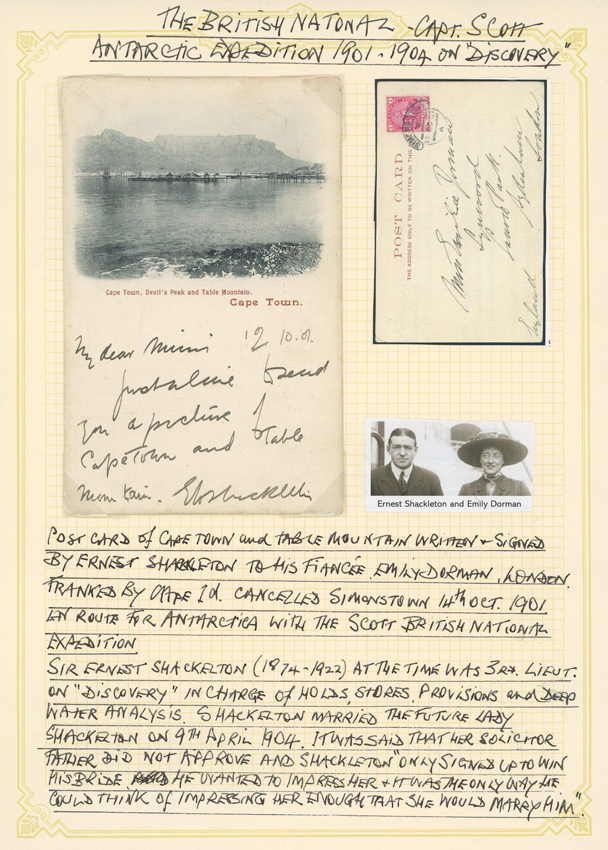 THE BRITISH NATONAL - CAPT. SCOTT
ANTARCTIC EXPEDITION 1901-1904 ON "DISCOVERY"
Cape Town, Devil's Peak and Table Mountain.
Cape Town.
My dear Mimi 12 10.01.
just a line to send
you a picture of
Cape Town and Table
Mountain. EHShackleton
POST CARD
THE ADDRESS ONLY TO BE WRITTEN ON THIS
Miss Emilie Dorman
Park
Sydenham
London
England
Ernest Shackleton and Emily Dorman
POST CARD of CAPE TOWN and TABLE MOUNTAIN WRITTEN + SIGNED
BY ERNEST SHACKLETON TO HIS FIANCÉE, EMILY DORMAN, LONDON.
FRANKED BY CAPE 1d. CANCELLED SIMONSTOWN 14th OCT. 1901
EN ROUTE FOR ANTARCTICA WITH THE SCOTT BRITISH NATIONAL
EXPEDITION
SIR ERNEST SHACKELTON (1874-1922) AT THE TIME WAS 3RD. LIEUT.
ON "DISCOVERY" IN CHARGE of HOLDS, STORES, PROVISIONS and DEEP
WATER ANALYSIS. SHACKELTON MARRIED THE FUTURE LADY
SHACKELTON ON 9TH APRIL 1904. IT WAS SAID THAT HER SOLICITOR
FATHER DID NOT APPROVE AND SHACKLETON "ONLY SIGNED UP TO WIN
HIS BRIDE HE WANTED TO IMPRESS HER + IT WAS THE ONLY WAY HE
COULD THINK OF IMPRESSING HER ENOUGH THAT SHE WOULD MARRY HIM".